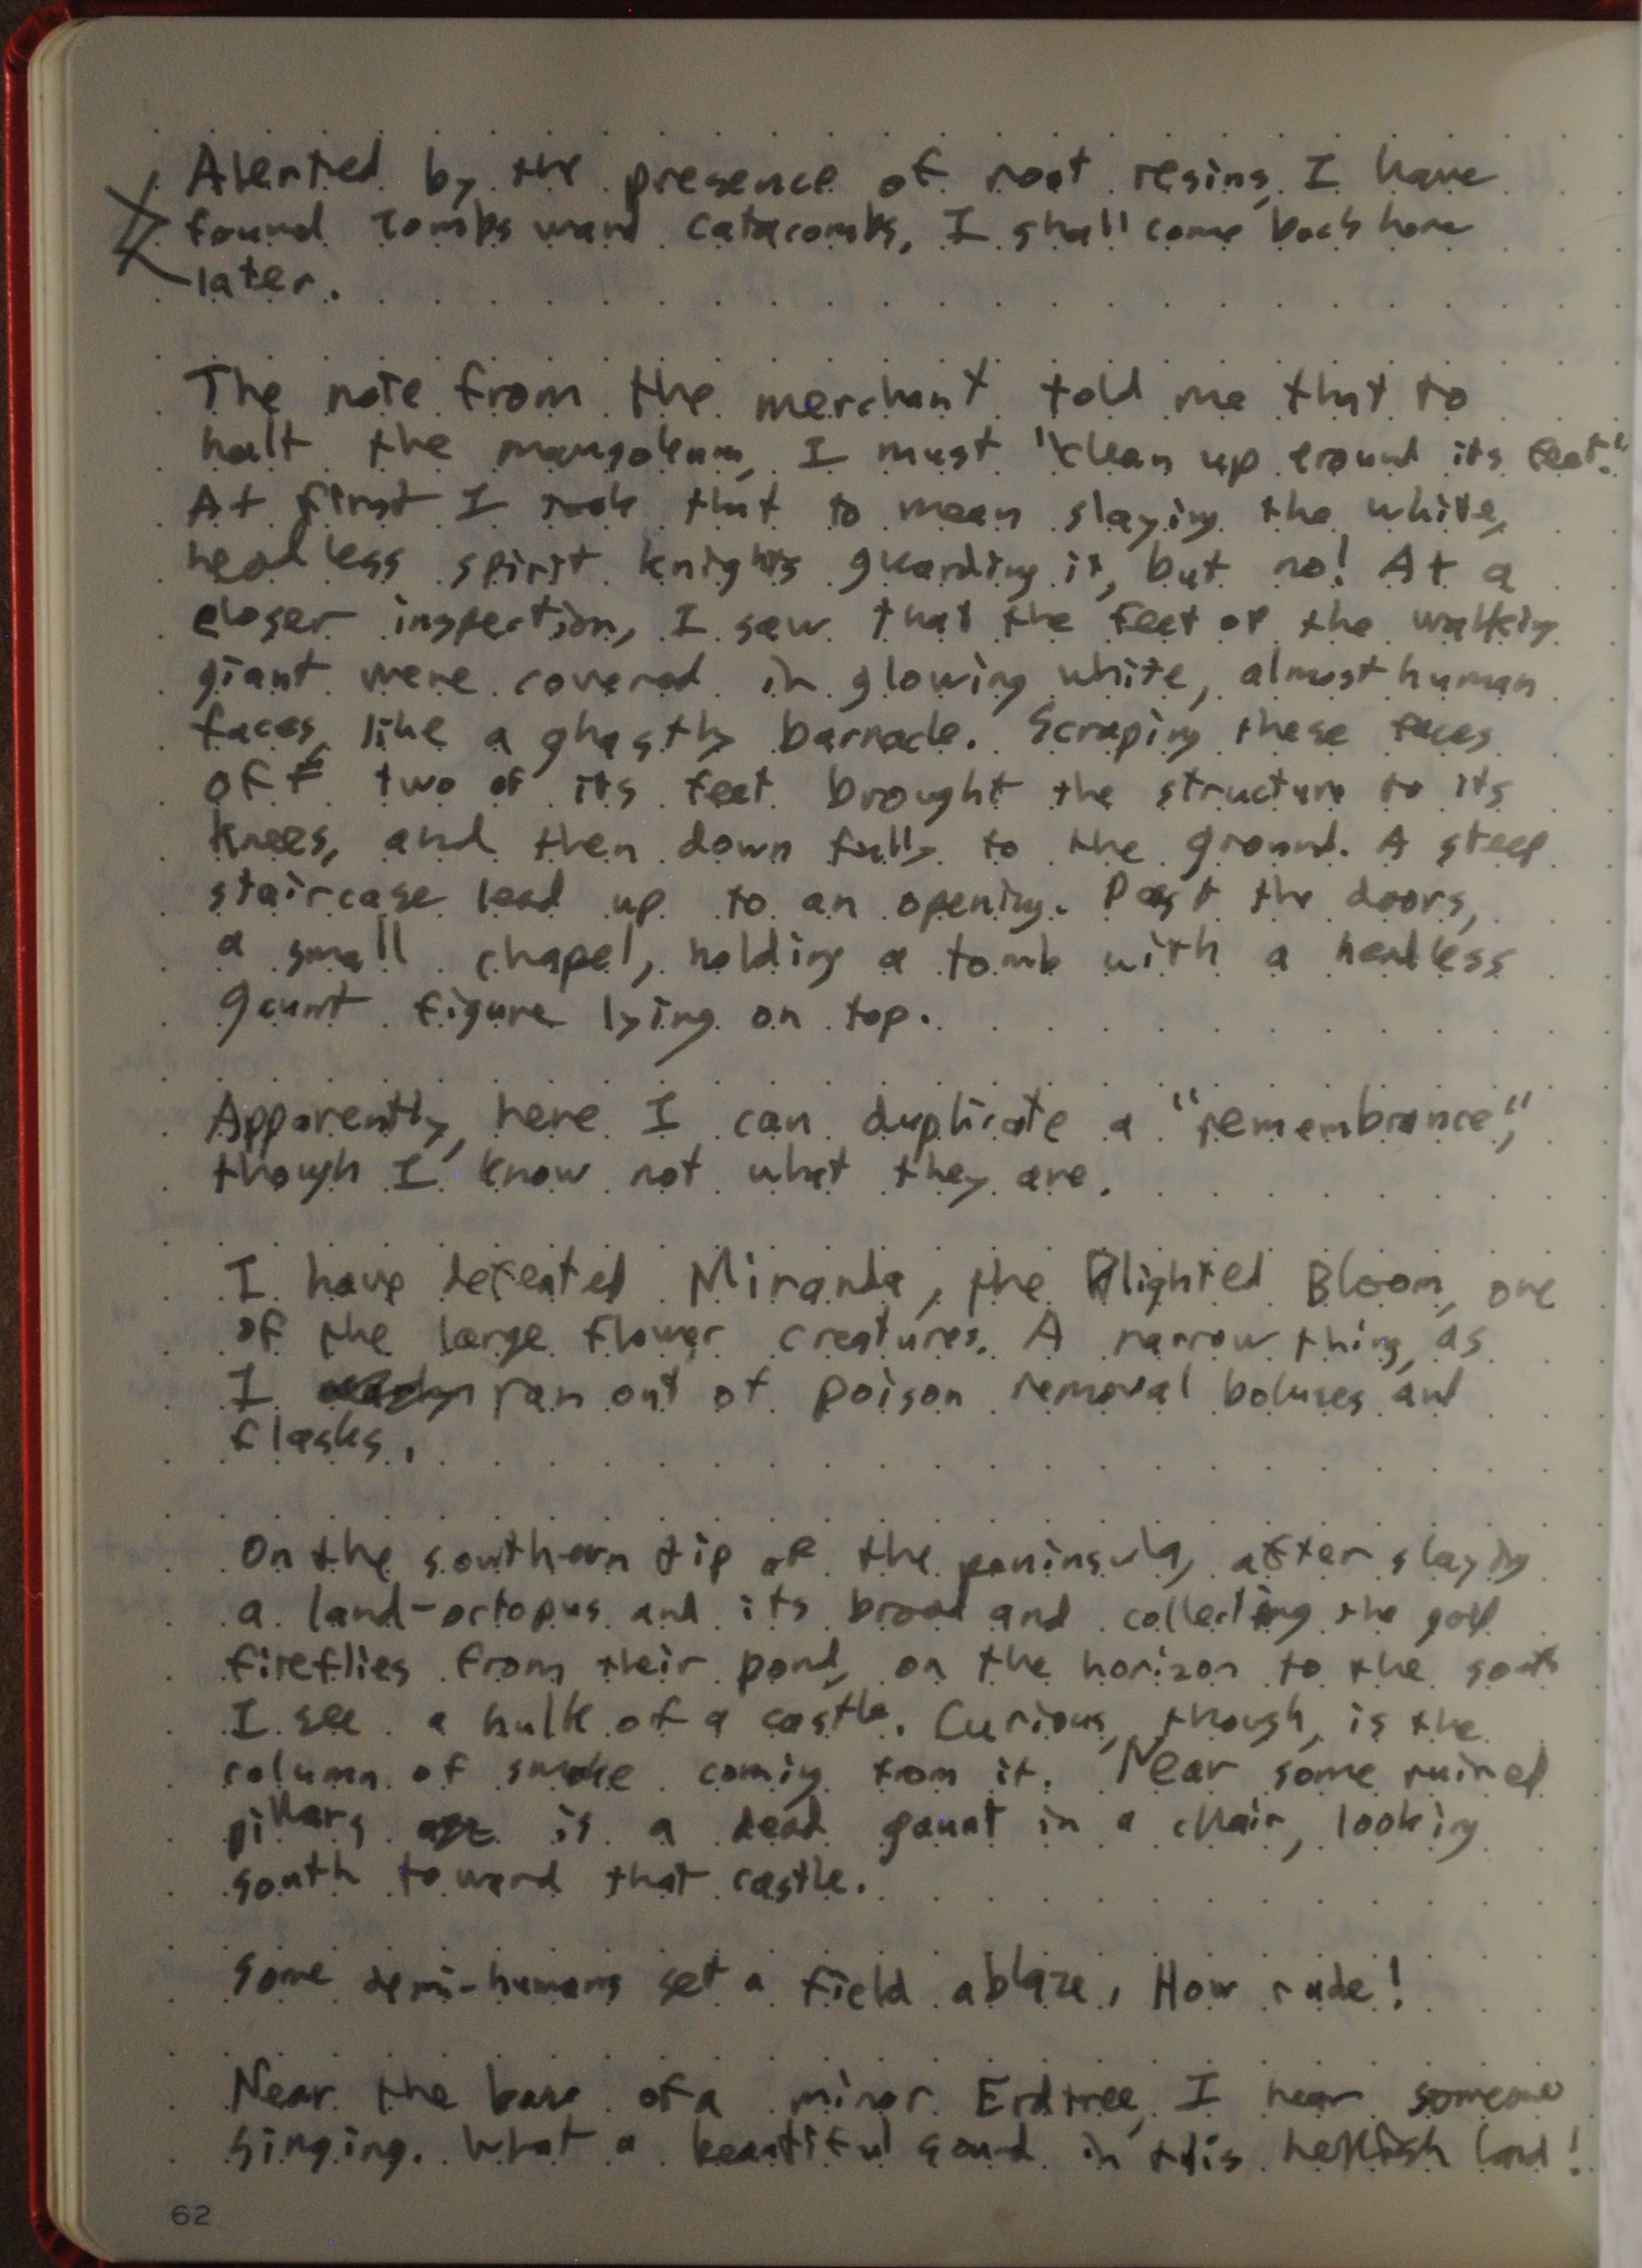 Alerted by the presence of root resins, I have
found Tombsward Catacombs, I shall come back here
later.
The note from the merchant told me that to
halt the mausoleum, I must "clean up around its feet."
At first I took that to mean slaying the white,
headless spirit knights guarding it, but no! At a
closer inspection, I saw that the feet of the walking
giant were covered in glowing white, almost human
faces, like a ghastly barnacle. Scraping these faces
off two of its feet brought the structure to its
knees, and then down fully to the ground. A steep
staircase lead up to an opening. Past the doors,
a small chapel, holding a tomb with a headless
gaunt figure lying on top.
Apparently, here I can duplicate a "remembrance",
though I know not what they are.
I have defeated Miranda, the Blighted Bloom, one
of the large flower creatures. A narrow thing, as
I ran out of poison removal boluses and
flasks.
On the southern tip of the peninsula, after slaying
a land-octopus and its brood and collecting the gold
fireflies from their pond, on the horizon to the south
I see a hulk of a castle. Curious, though, is the
column of smoke coming from it. Near some ruined
pillars is a dead gaunt in a chair, looking
south toward that castle.
Some demi-humans set a field ablaze, How rude!
Near the base of a minor Erdtree, I hear someone
singing. What a beautiful sound in this hellish land!
62